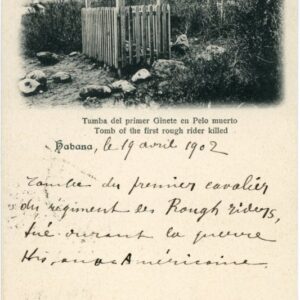 Tumba del primer Ginete en Pelo muerto
Tomb of the first rough rider killed
Habana, le 19 avril 1902
Tombe du premier cavalier
du régiment des Rough riders,
tué durant la guerre
Hispano Américaine